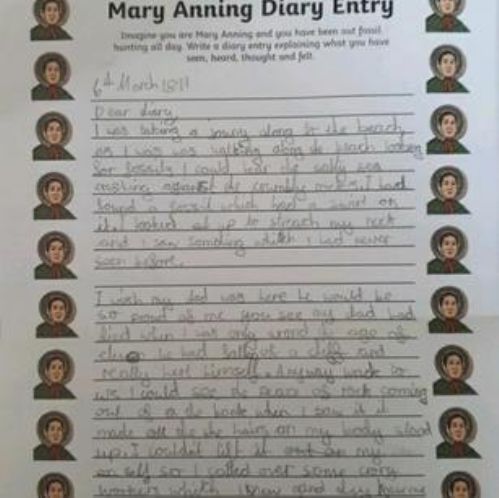 Mary Anning Diary Entry
Imagine you are Mary Anning and you have been out fossil
hunting all day. Write a diary entry explaining what you have
seen, heard, thought and felt.
6th March 1811
Dear diary,
I was taking a along to the beach
as I was was walking along the beach looking
for fossils I could hear the salty sea
crashing against the I had
found a fossil which had a on
it. I looked up to my neck
and I saw something which I had never
seen before.
I wish my dad was here he would be
so proud of me you see my dad had
died when I was only around the age of
he had of a cliff and
really hurt himself. Anyway back to
I could see the of rock coming
out of the when I saw it it
made all the the hairs on my body stood
up. I couldnt lift it my
own self so I called over some
workers which I know and